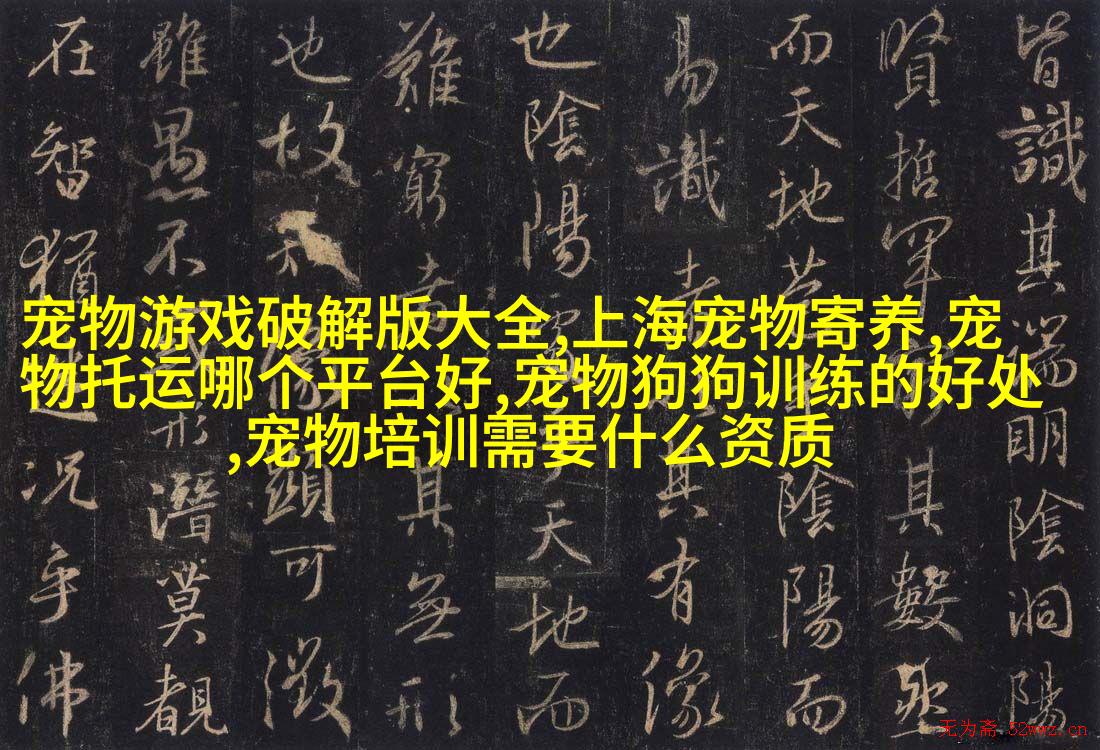 宠物游戏破解版大全,上海宠物寄养,宠
物托运哪个平台好,宠物狗狗训练的好处
,宠物培训需要什么资质
皆識其端明陰洞陽
賢哲罕其數
而天地苞陰陽而
易識者其有像
也陰陽處天地而
難窮者其無形
也故知像顯可徵
雖愚不形潛莫覩
在智猶況乎佛
无为斋 52wwz.cn